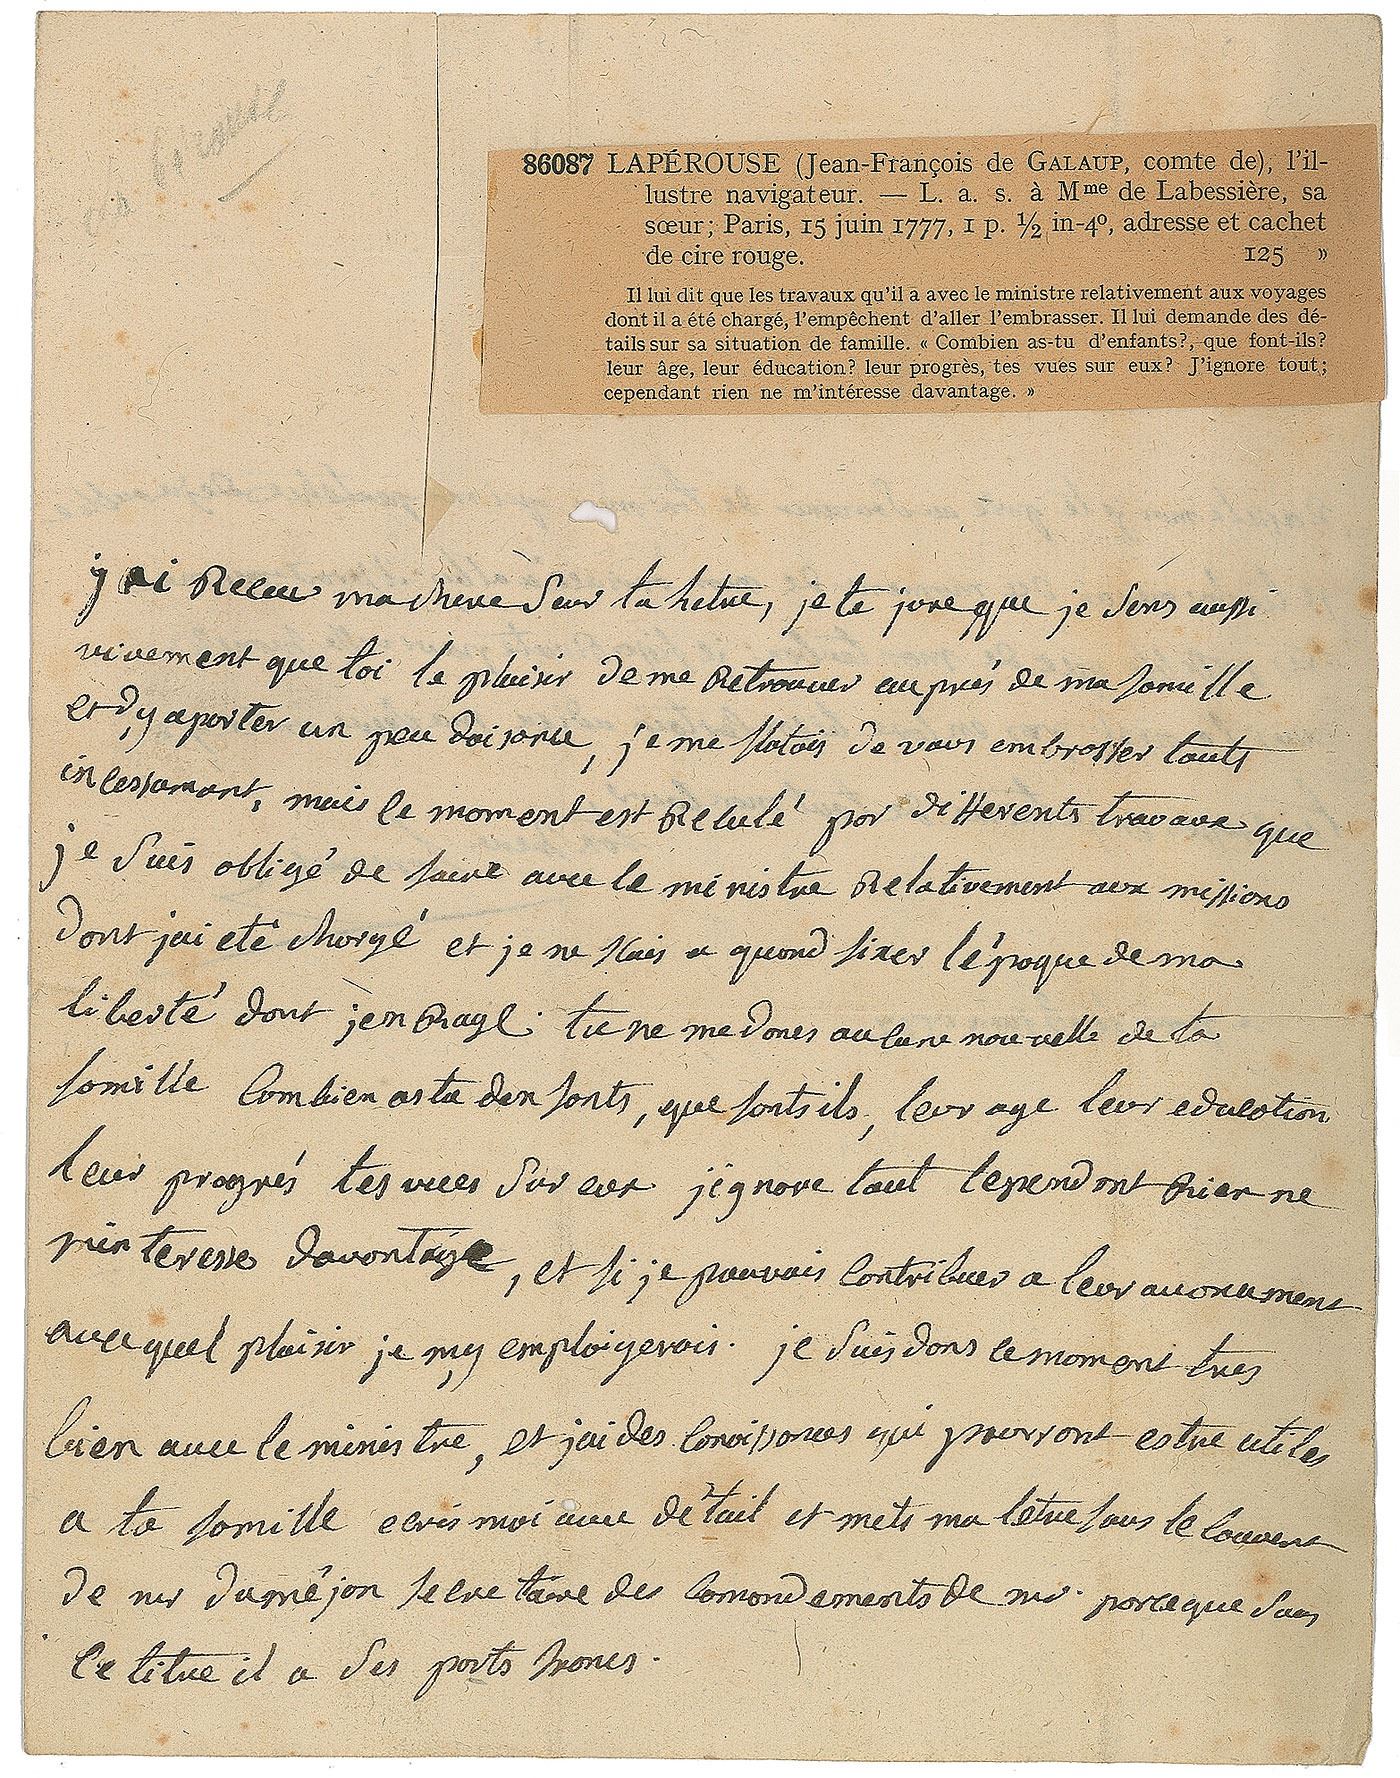 86087 LAPÉROUSE (Jean-François de GALAUP, comte de), l'il-
lustre navigateur. — L. a. s. à Mme de Labessière, sa
sœur; Paris, 15 juin 1777, 1 p. ½ in-4º, adresse et cachet
de cire rouge. 125 »
Il lui dit que les travaux qu'il a avec le ministre relativement aux voyages
dont il a été chargé, l'empêchent d'aller l'embrasser. Il lui demande des dé-
tails sur sa situation de famille. « Combien as-tu d'enfants?, que font-ils?
leur âge, leur éducation? leur progrès, tes vues sur eux? J'ignore tout;
cependant rien ne m'intéresse davantage. »
jai Receu ma chere Seur ta letre, je te jure que je Sens aussi
vivement que toi le plaisir de me Retrouver auprés de ma famille
et d'y aporter un peu daisance, je me flatois de vous embrasser touts
incessament, mais le moment est Reculé par differents travaux que
je Suis obligé de faire avec le ministre Relativement aux missions
dont jai eté chargé et je ne sais a quand fixer l'époque de ma
liberté dont jenRage. tu ne me dones aucune nouvelle de ta
famille Combien as tu denfants, que fonts ils, leur age leur education
leur progrés tes vues Sur eux j'ignore tout cependant Rien ne
minteresse davantage, et si je pouvais Contribuer a leur avancement
avec quel plaisir je m'y emploiyerais. je Suis dans ce moment tres
bien avec le ministre, et jai des Conoissances qui pourront estre utiles
a ta famille ecris moi avec détail et mets ma letre sous le couvert
de mr duméjon secretaire des Comandements de mr. parceque Sous
ce titre il a Ses ports francs.